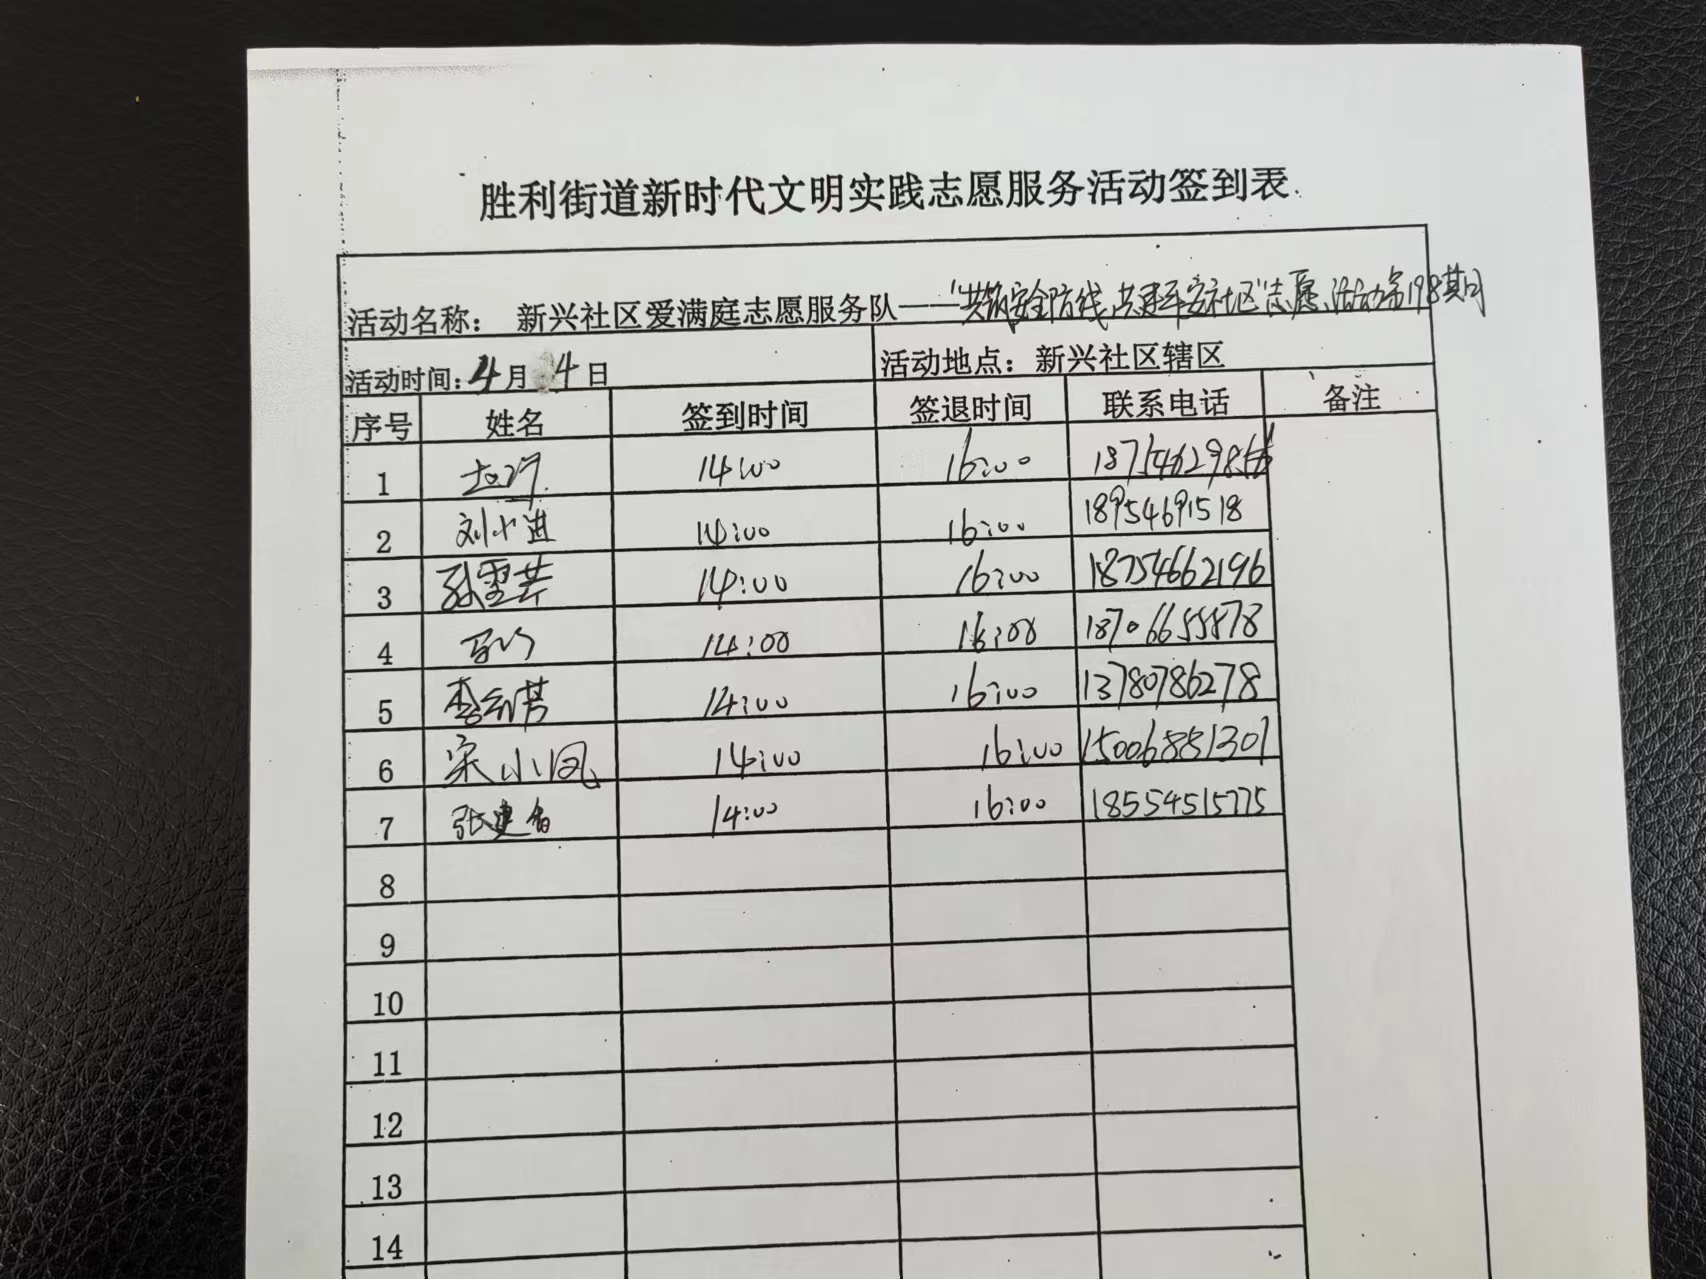 胜利街道新时代文明实践志愿服务活动签到表
活动名称： 新兴社区爱满庭志愿服务队——“共筑安全防线，共建平安社区”志愿活动第198期
活动时间：4月4日 活动地点：新兴社区辖区
序号 姓名 签到时间 签退时间 联系电话 备注
1 14:00 16:00
2 刘小进 14:00 16:00 18954691518
3 孙雪芹 14:00 16:00 18754662196
4 14:00 16:00 18706655878
5 14:00 16:00 13780786278
6 宋小凤 14:00 16:00 15006881301
7 14:00 16:00 18554515775
8
9
10
11
12
13
14